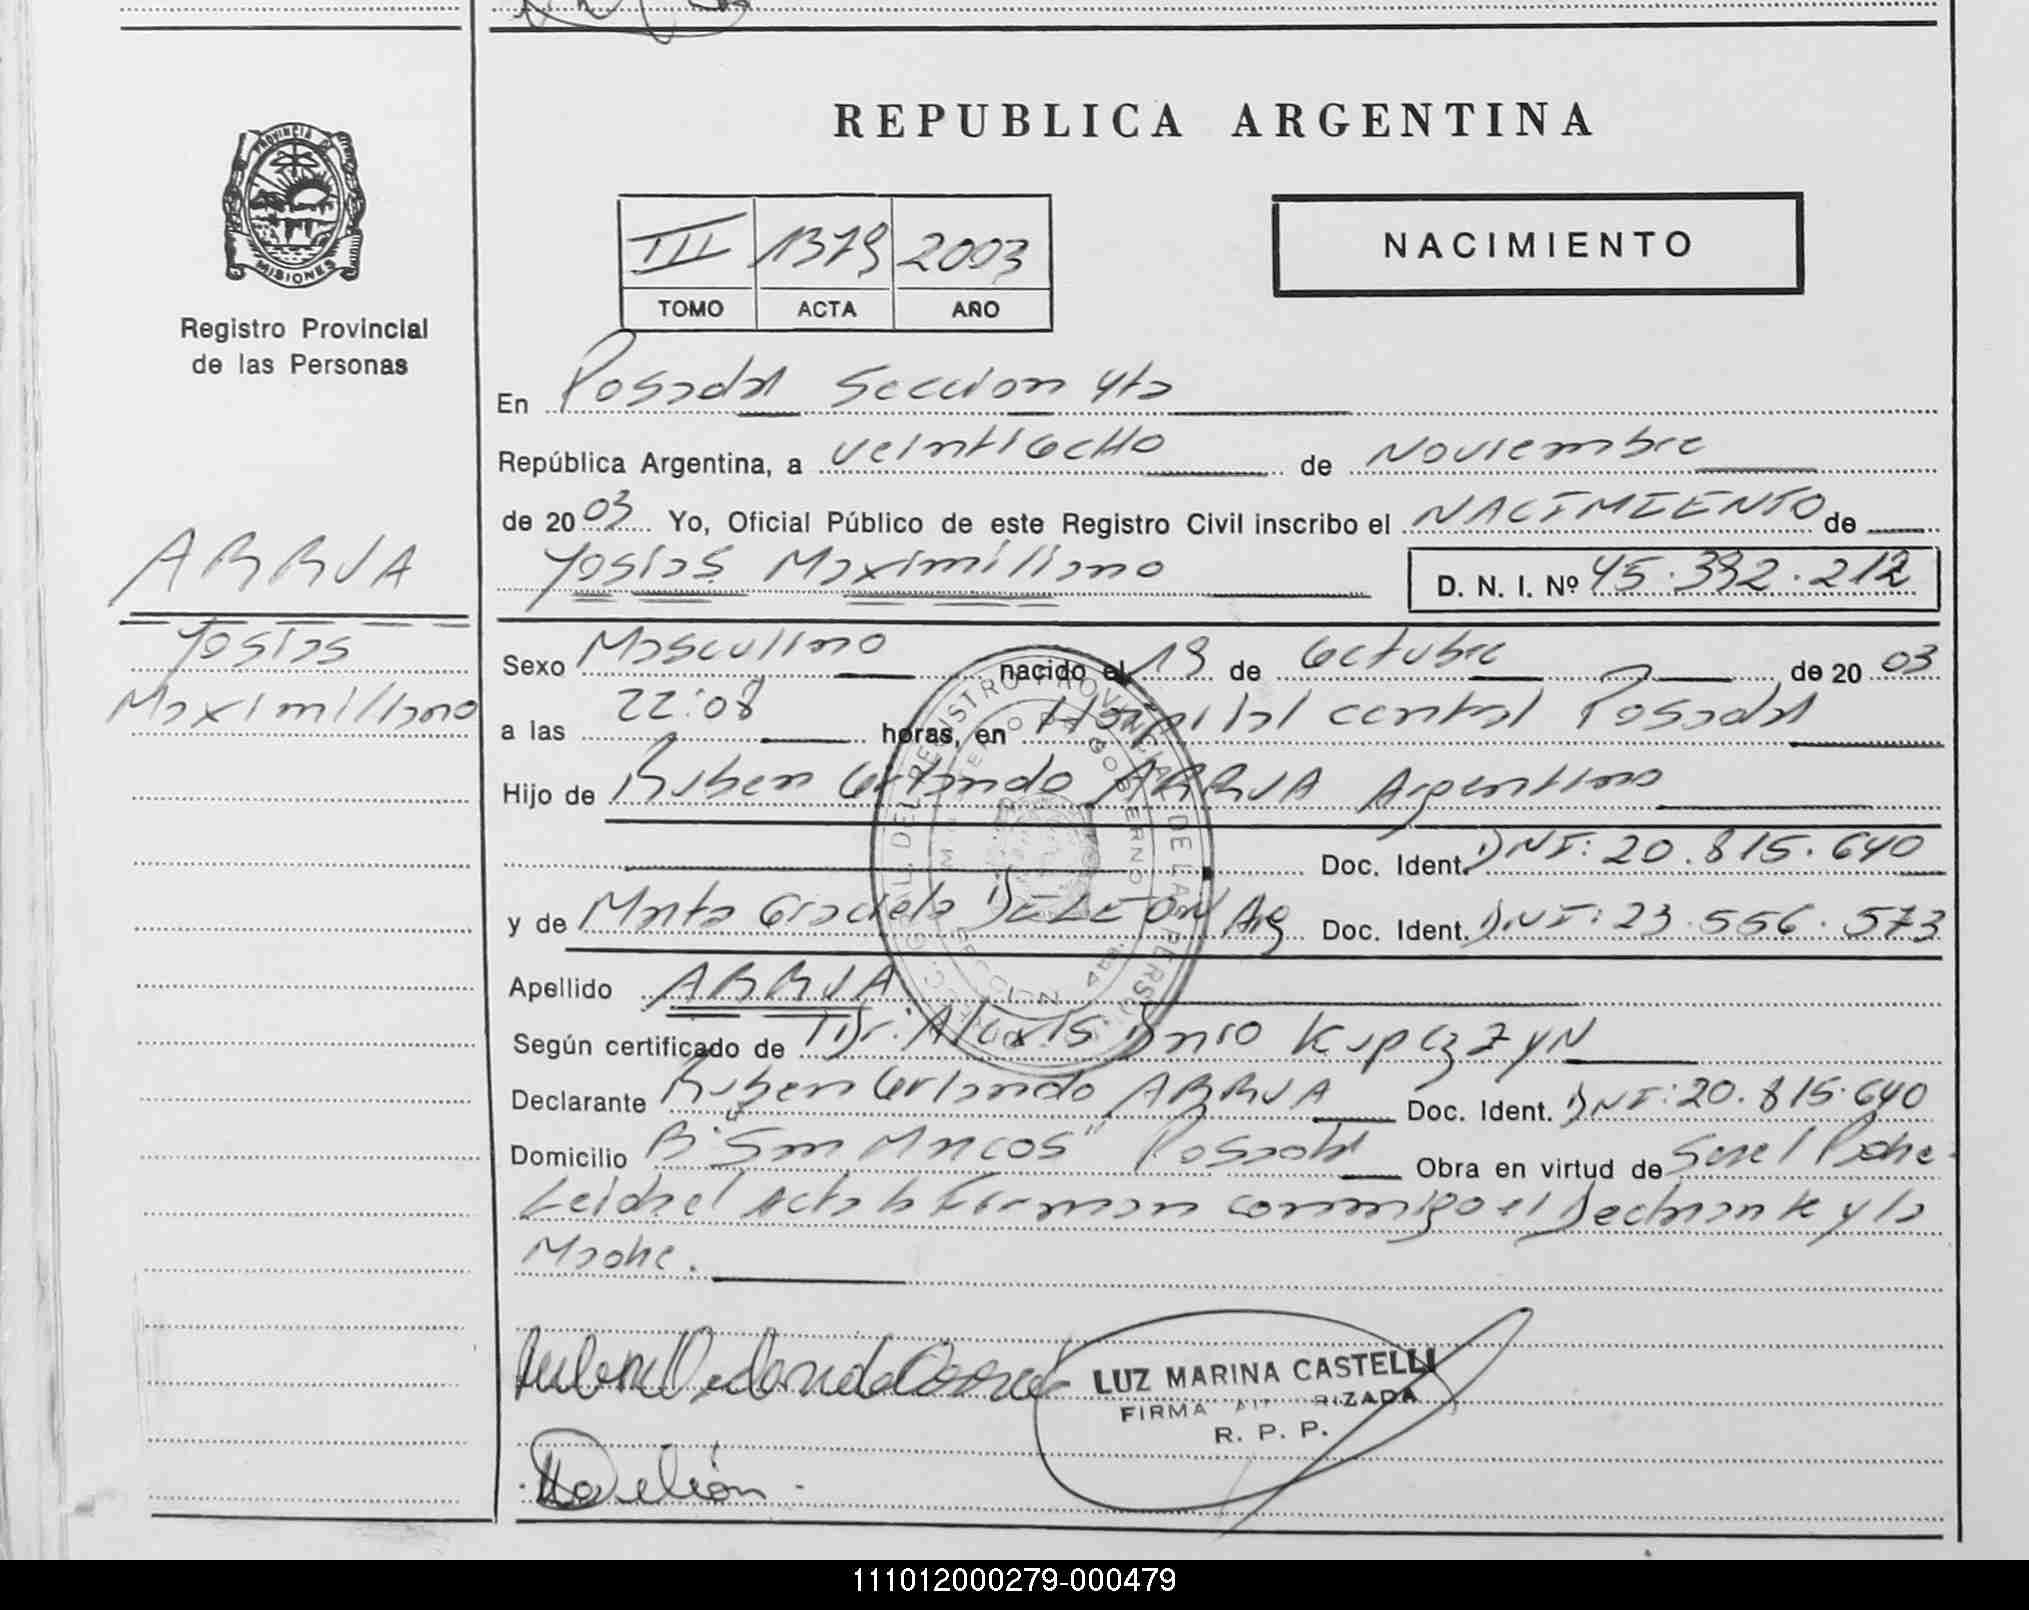 PROVINCIA DE
MISIONES
Registro Provincial
de las Personas
REPUBLICA ARGENTINA
III 1379 2003
TOMO ACTA AÑO
NACIMIENTO
En Posadas Seccion 4ta
República Argentina, a veintiocho de Noviembre
de 2003 Yo, Oficial Público de este Registro Civil inscribo el NACIMIENTO de
Yosias Maximiliano D. N. I. Nº 45.392.212
ARRUA
Yosias
Maximiliano
Sexo Masculino nacido el 19 de Octubre de 2003
a las 22:08 horas, en Hospital central Posadas
Hijo de Ruben Orlando ARRUA Argentino
Doc. Ident. DNI: 20.815.640
y de Marta Graciela DELEON Arg Doc. Ident. DNI: 23.556.573
Apellido ARRUA
Según certificado de Dr. Alexis Dario Kupczzyn
Declarante Ruben Orlando ARRUA Doc. Ident. DNI: 20.815.640
Domicilio B° "San Marcos" Posadas Obra en virtud de Ser el Padre.
Leida el Acta la Firman conmigo el Declarante y la
Madre.
LUZ MARINA CASTELLI
FIRMA AUTORIZADA
R. P. P.
111012000279-000479